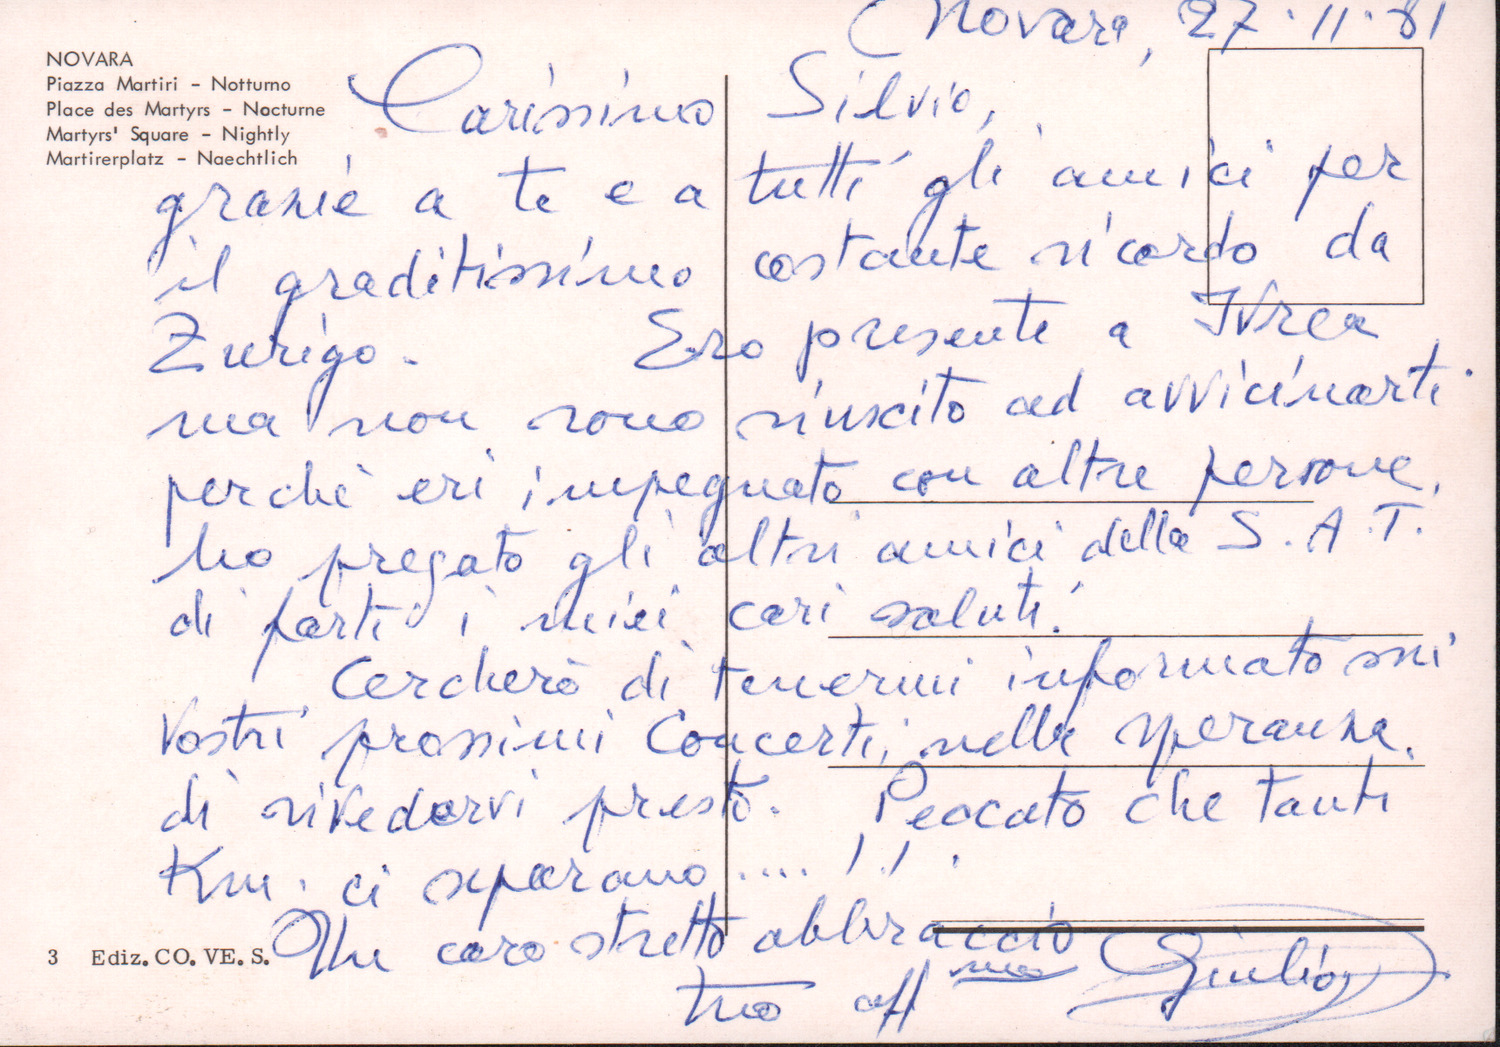 Novara, 27.11.81
NOVARA
Piazza Martiri – Notturno
Place des Martyrs – Nocturne
Martyrs' Square – Nightly
Martirerplatz – Naechtlich
Carissimo Silvio,
grazie a te e a tutti gli amici per
il graditissimo costante ricordo da
Zurigo. Ero presente a Ivrea
ma non sono riuscito ad avvicinarti
perché eri impegnato con altre persone,
ho pregato gli altri amici della S.A.T.
di farti i miei cari saluti.
Cercherò di tenermi informato sui
Vostri prossimi Concerti, nella speranza
di rivedervi presto. Peccato che tanti
Km. ci separano....!!.
Un caro stretto abbraccio
tuo aff mo Giulio
3 Ediz. CO. VE. S.